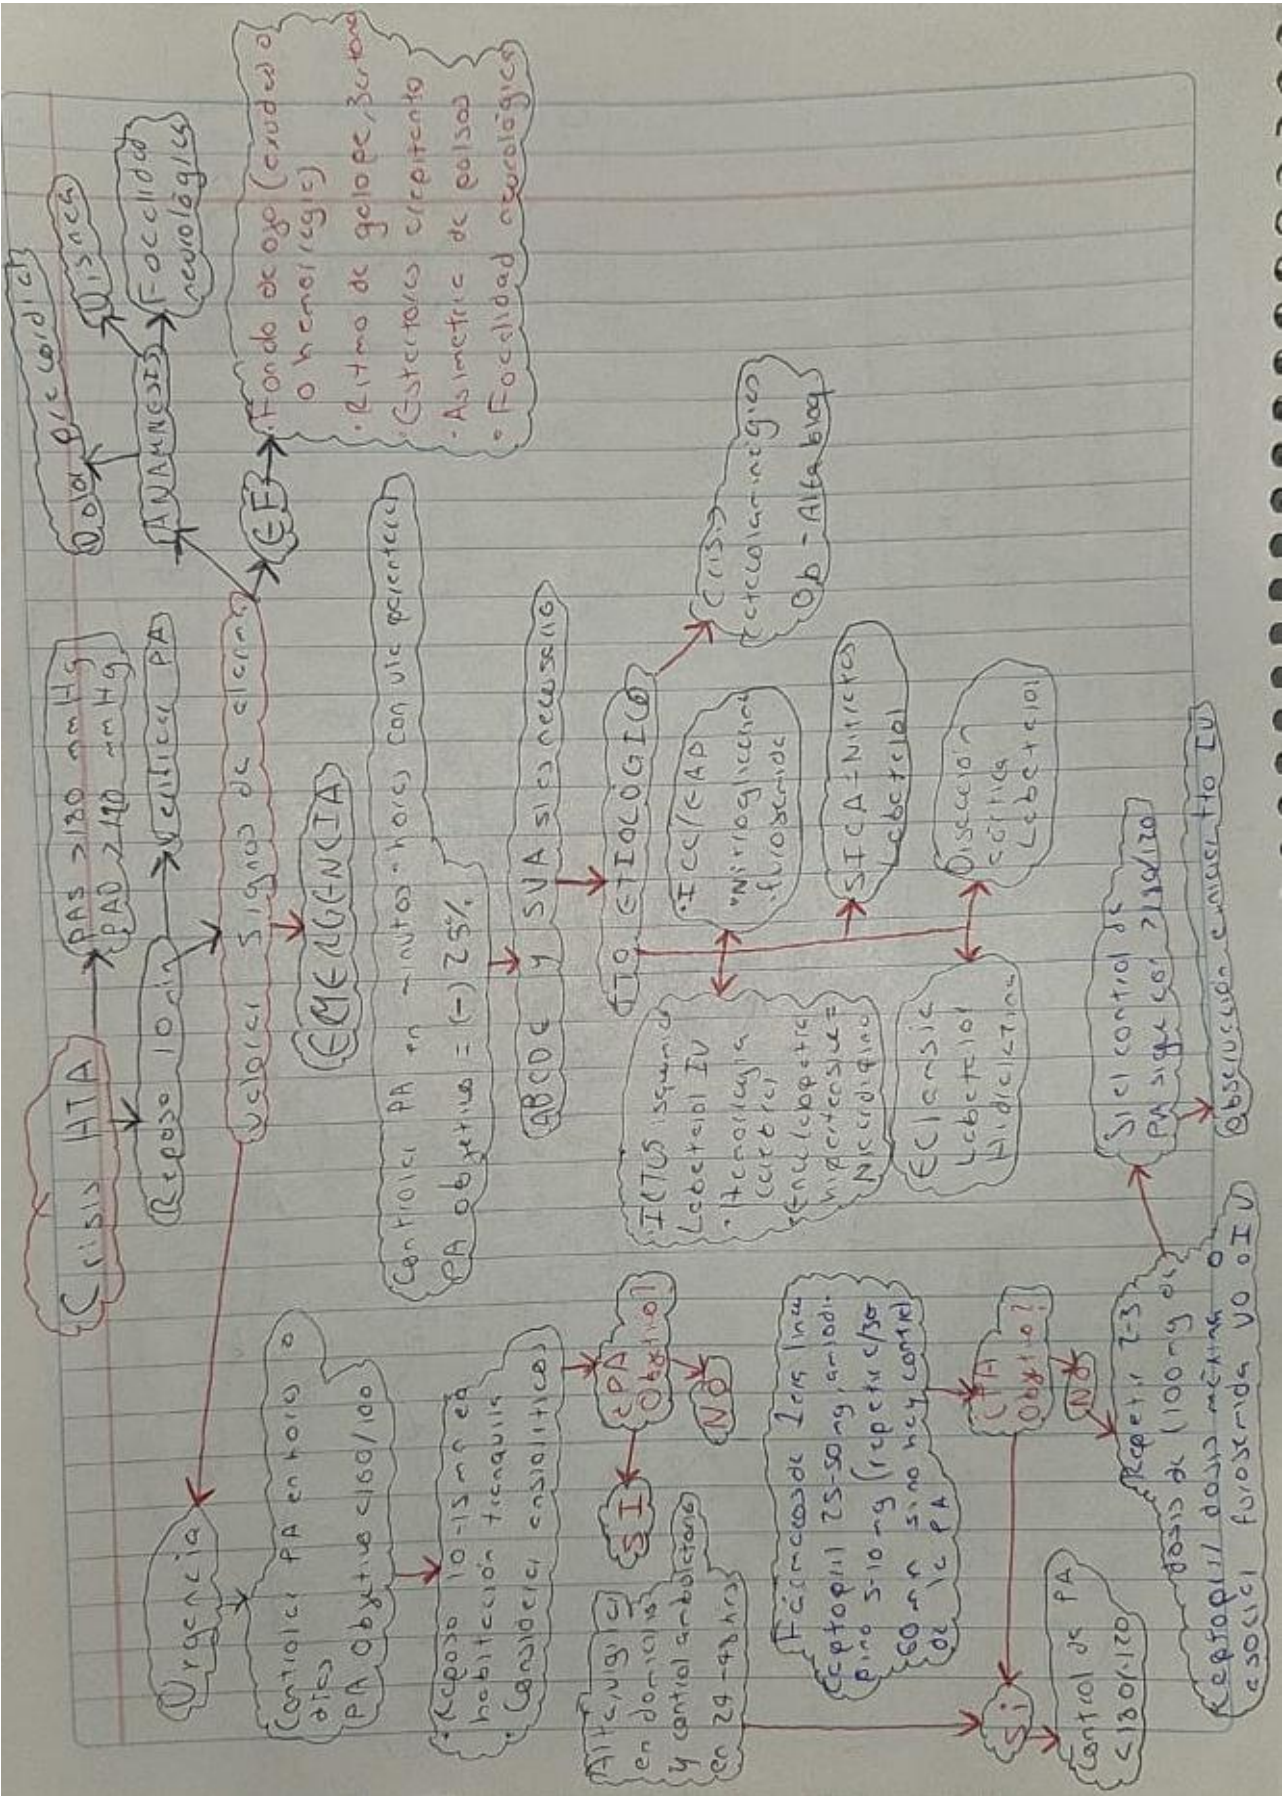 Crisis HTA
PAS >180 mmHg
PAD >110 mmHg
Reposo 10 min
Verificar PA
Valorar signos de alarma
ANAMNESIS
Dolor precordial
Disnea
Focalidad
neurológica
EF
· Fondo de ojo (exudado o
o hemorragia)
· Ritmo de galope, 3er tono
· Estertores crepitante
· Asimetría de pulsos
· Focalidad neurológica
EMERGENCIA
Controlar PA en minutos-horas con vía parenteral
PA objetivo = (-) 25%
ABCDE y SVA si es necesario
TTO ETIOLÓGICO
Crisis
catecolaminérgica
Ob - Alfa bloq
· ICC/EAP
·Nitroglicerina
·furosemida
SICA = Nitratos
Labetalol
Disección
aórtica
Labetalol
· ICTUS isquemico
Labetalol IV
· Hemorragia
cerebral
Encefalopatia
hipertensiva =
Nicardipino
Eclansia
Labetalol
Hidralazina
Urgencia
Controlar PA en horas o
días
PA Objetivo <160/100
· Reposo 10-15mn en
habitación tranquila
· Considerar ansiolíticos
¿PA
Objetivo?
SI
NO
Alta, vigilar
en domicilio
y control ambulatorio
en 24-48hrs
Fármacos de 1era linea
captopril 25-50mg, amlodi-
pino 5-10 mg (repetir c/30
60mn si no hay control
de la PA
¿PA
Objetivo?
Si
NO
Control de PA
<180/120
Repetir 2-3
dosis de (100mg de
captopril dosis máxima o
asociar furosemida VO o IV
Si el control de
PA sigue con >180/120
Observación e iniciar tto IV